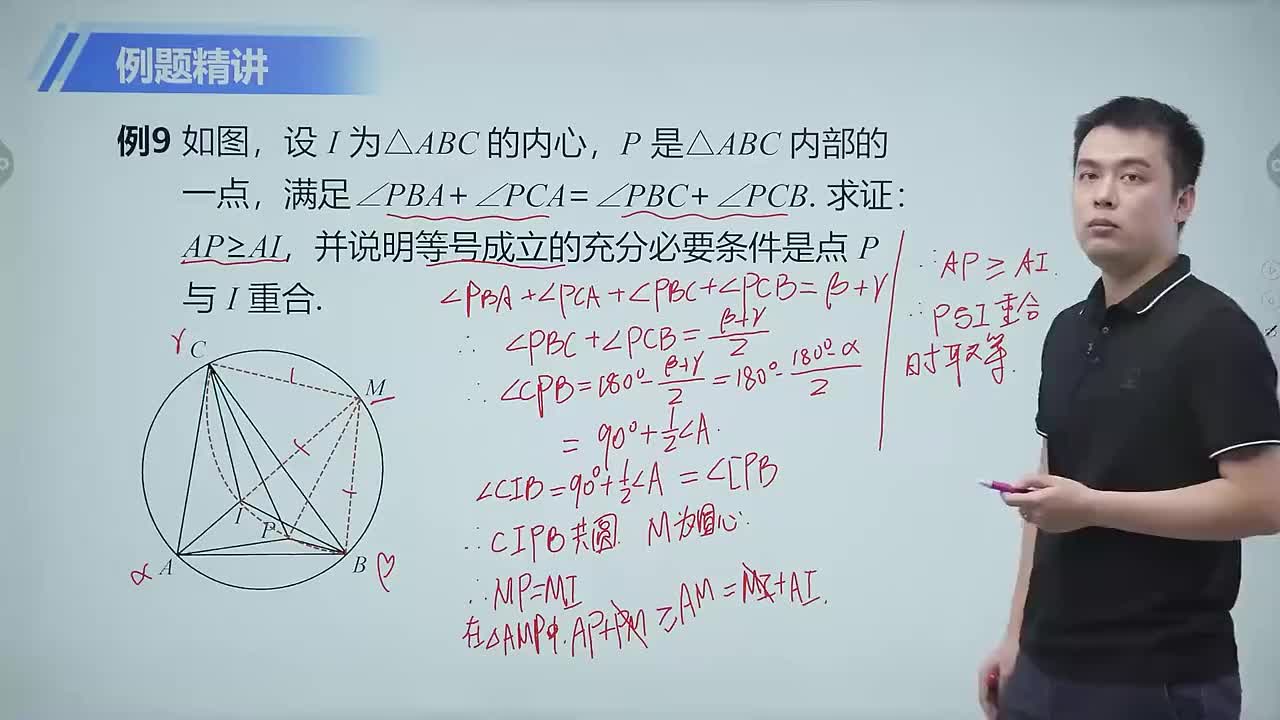 例题精讲
例9 如图，设 I 为△ABC 的内心，P 是△ABC 内部的
一点，满足∠PBA+∠PCA=∠PBC+∠PCB. 求证：
AP≥AI，并说明等号成立的充分必要条件是点 P
与 I 重合.
∠PBA+∠PCA+∠PBC+∠PCB=β+γ
∴ ∠PBC+∠PCB=β+γ/2
∴ ∠CPB=180°-β+γ/2=180°-180°-α/2
=90°+1/2∠A.
∠CIB=90°+1/2∠A=∠CPB
∴CIPB共圆. M为圆心.
∴MP=MI
在△AMP中.AP+PM≥AM=MI+AI.
∴AP≥AI.
∴P与I重合
时取等.
γ C
M
I
P
α A
B β